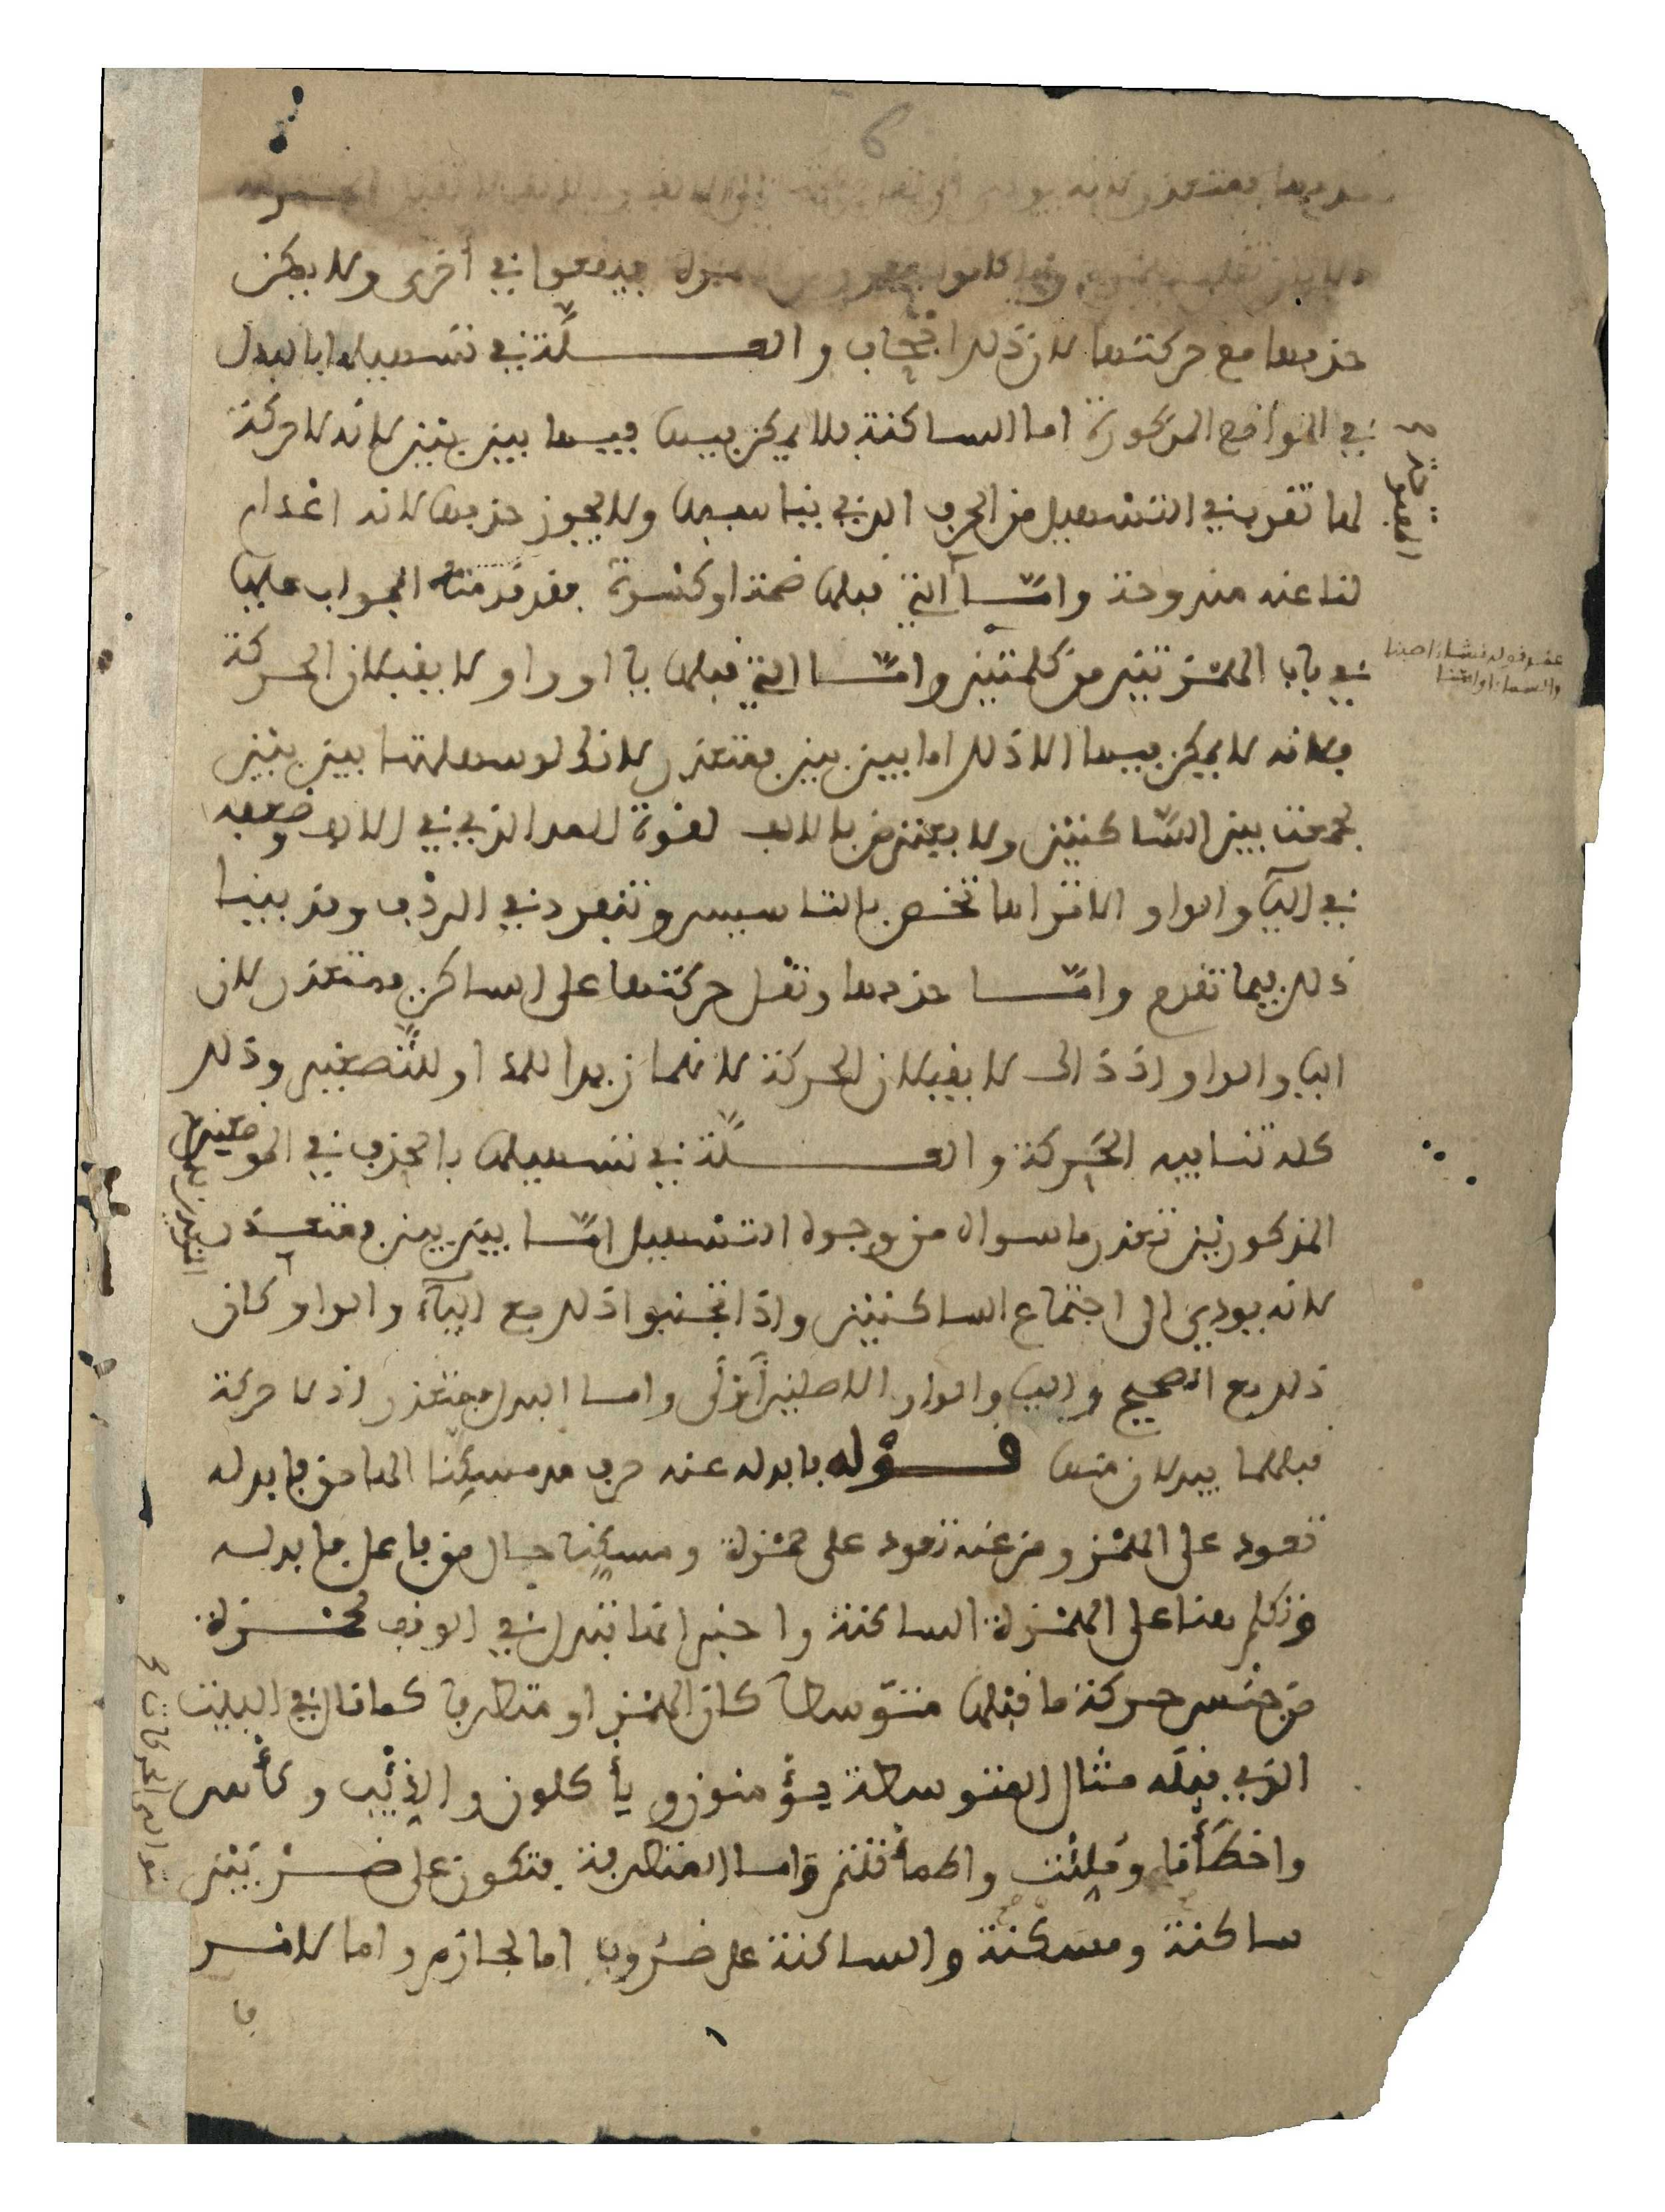 فيدفعوا في أخرى ولا يمكن
حذفها مع حركتها لان ذلك اجحاف والعلة في تسهيلها بالبدل
في المواضع المذكورة اما الساكنة فلا يمكن فيها فيها بين بين لانه لا حركة
لها تقرب في التسهيل من الحرف الذي يناسبها ولا يجوز حذفها لانه اعدام
لنا عنه مندوحة وامّا التي قبلها ضمة او كسرة فقد قدمنا الجواب عليها
في باب الهمزتين من كلمتين وامّا التي قبلها يا او واو لا يقبلان الحركة
فلانه لا يمكن فيها الا ذلك اما بين بين فمتعذر لانك لو سهلتها بين بين
لجمعت بين السّاكنين ولا يعترض بالالف لقوة المد الذي في الالف وضعفه
في اليآ والواو الا ترا انها تختص بالتاسيس وتنفرد في الردف وقد بينا
ذلك فيما تقدم وامّا حذفها ونقل حركتها على الساكن فمتعذر لان
اليا والواو اذ ذاك لا يقبلان الحركة لانهما زيدا للمد او للتّصغير وذلك
كله تنافيه الحركة والعلّة في تسهيلها بالحذف في الموضعين
المذكورين تعذر ما سواه من وجوه التسهيل امّا بين بين فمتعذر
لانه يودي الى اجتماع الساكنين واذا تجنبوا ذلك مع اليآء والواو كان
ذلك مع الصحيح واليا والواو الاصليين أولى واما البدل فمتعذر اذ لا حركة
قبلهما يبدلان منها قوله فابدله عنه حرف مد مسكنا الها من فابدله
تعود على الهمز ومن عنه تعود على حمزة ومسكنا حال من فاعل فابدله
وتكلم هنا على الهمزة الساكنة واخبر انها تبدل في الوقف لحمزة
من جنس حركة ما قبلها متوّسطا كان الهمز او متطرفا كما قال في البيت
الذي قبله مثال المتوسطة يؤمنون ويأكلون والذئب وكأس
واخطأنا ومُلِئْت واطمأننتم واما المتطرفة فتكون على ضربين
ساكنة ومسكنة والساكنة على ضروب اما لجازم واما لامر